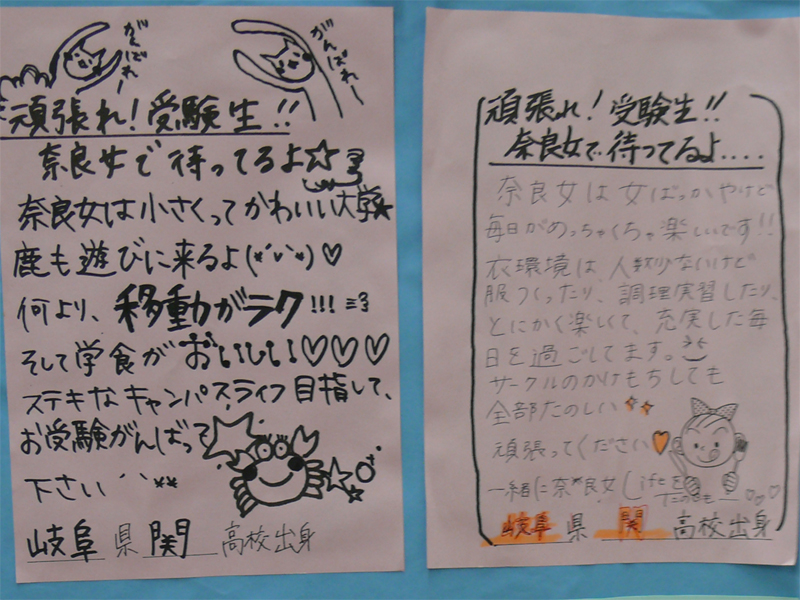 がんばれー
がんばれー
頑張れ!受験生!!
奈良女で待ってるよ☆
奈良女は小さくってかわいい大学★
鹿も遊びに来るよ(*´∀`*)♡
何より、移動がラク!!!
そして学食がおいしい♡♡♡
ステキなキャンパスライフ目指して、
お受験がんばって
下さい
岐阜県関高校出身
頑張れ!受験生!!
奈良女で待ってるよ....
奈良女は女ばっかやけど
毎日がめっちゃくちゃ楽しいです!!
衣環境は人数少ないけど
服つくったり、調理実習したり、
とにかく楽しくて、充実した毎
日を過ごしてます。
サークルのかけもちしても
全部たのしい
頑張ってください
一緒に奈良女Lifeを
岐阜県関高校出身